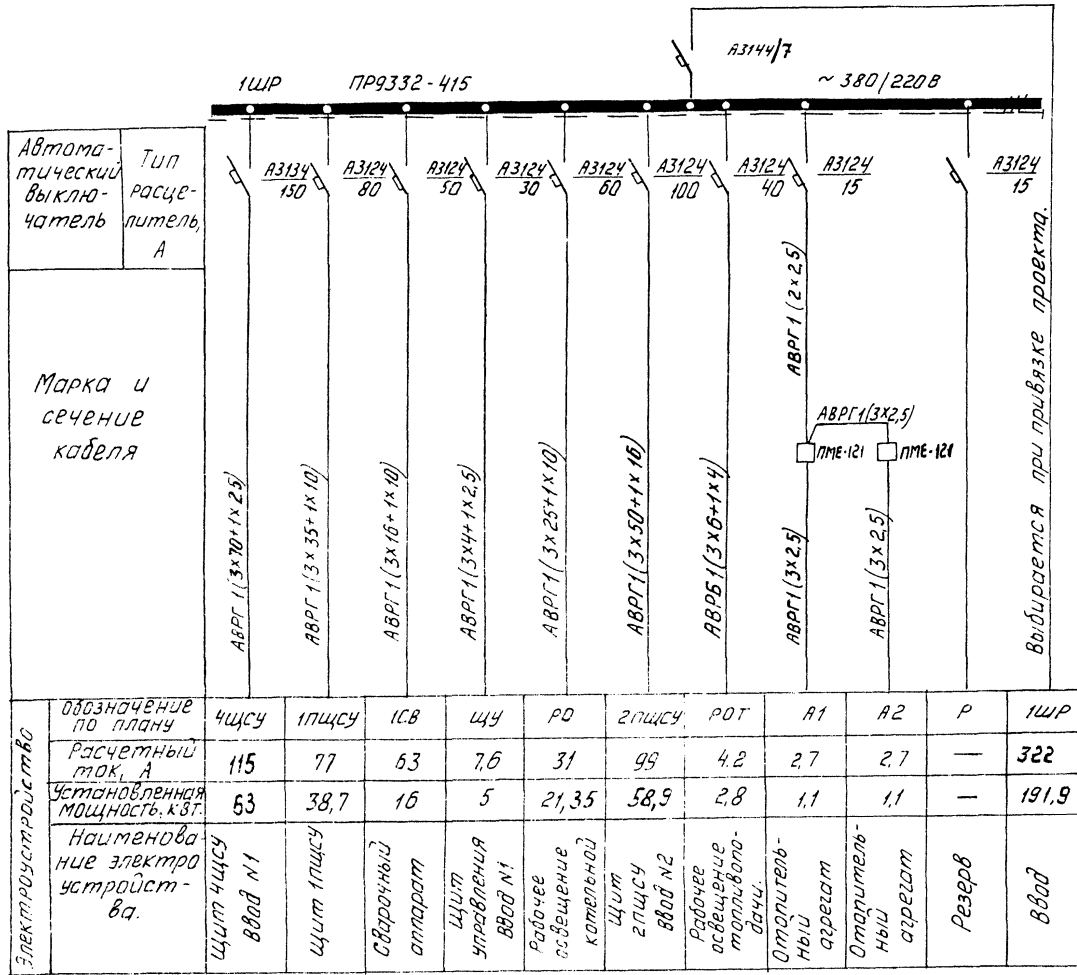 А3144/7
1ШР
ПР9332-415
~ 380/220В
Автома-
тический
выклю-
чатель
Тип
расце-
пителя,
А
А3134
150
А3124
80
А3124
50
А3124
30
А3124
60
А3124
100
А3124
40
А3124
15
А3124
15
Марка и
сечение
кабеля
АВРГ1(3×70+1×25)
АВРГ1(3×35+1×10)
АВРГ1(3×16+1×10)
АВРГ1(3×4+1×2,5)
АВРГ1(3×25+1×10)
АВРГ1(3×50+1×16)
АВРБ1(3×6+1×4)
АВРГ1(2×2,5)
АВРГ1(3×2,5)
ПМЕ-121
ПМЕ-121
АВРГ1(3×2,5)
АВРГ1(3×2,5)
Выбирается при привязке проекта.
Электроустройство
обозначение
по плану
4ЩСУ
1ПЩСУ
1СВ
ЩУ
РО
2ПЩСУ
РОТ
А1
А2
Р
1ШР
Расчетный
ток, А
115
77
63
7,6
31
99
4.2
2,7
2,7
—
322
Установленная
мощность, квт.
63
38,7
16
5
21,35
58,9
2,8
1,1
1,1
—
191,9
Наименова-
ние электро
устройст-
ва.
Щит 4щсу
ввод N1
Щит 1пщсу
Сварочный
аппарат
Щит
управления
ввод N1
Рабочее
освещение
котельной
Щит
2пщсу
ввод N2
Рабочее
освещение
топливопо-
дачи.
Отопитель-
ный
агрегат
Отопитель-
ный
агрегат
Резерв
Ввод